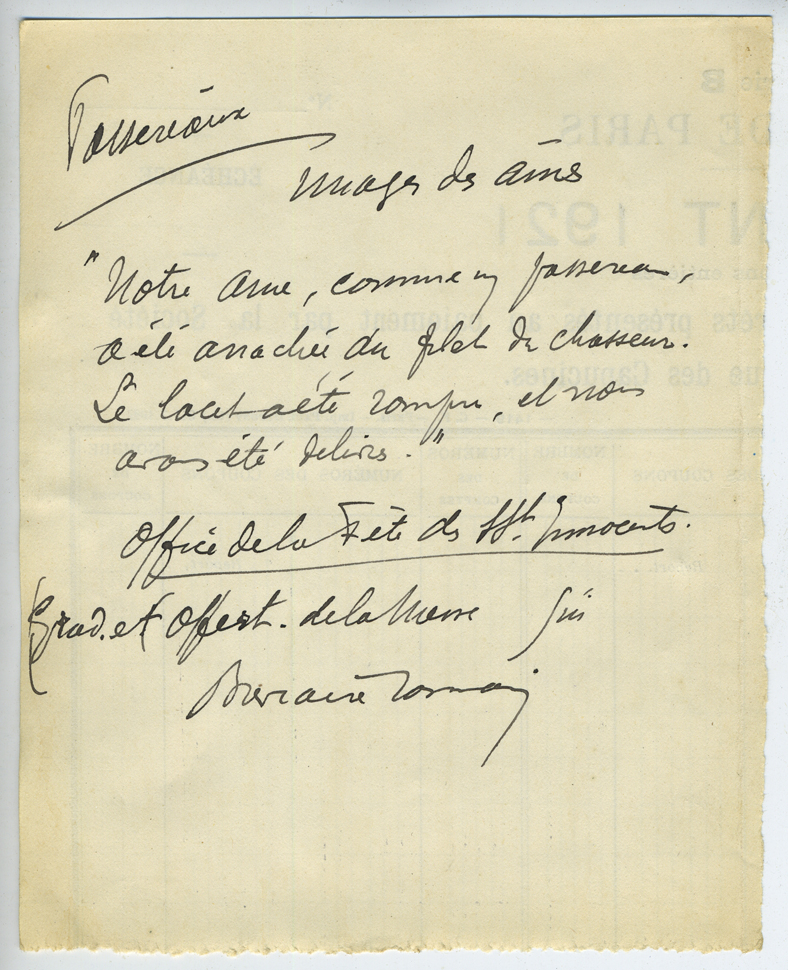 Passereaux
Images des âmes
"Notre âme, comme un passereau,
a été arrachée du filet du chasseur.
Le lacet a été rompu, et nous
avons été délivrés."
Office de la Fête des SSts Innocents.
(Grad. et Offert. de la Messe
Bréviaire romain
B
DE PARIS
ECHEANCE
NT 1921
présentés au paiement par la Société
rue des Capucines.